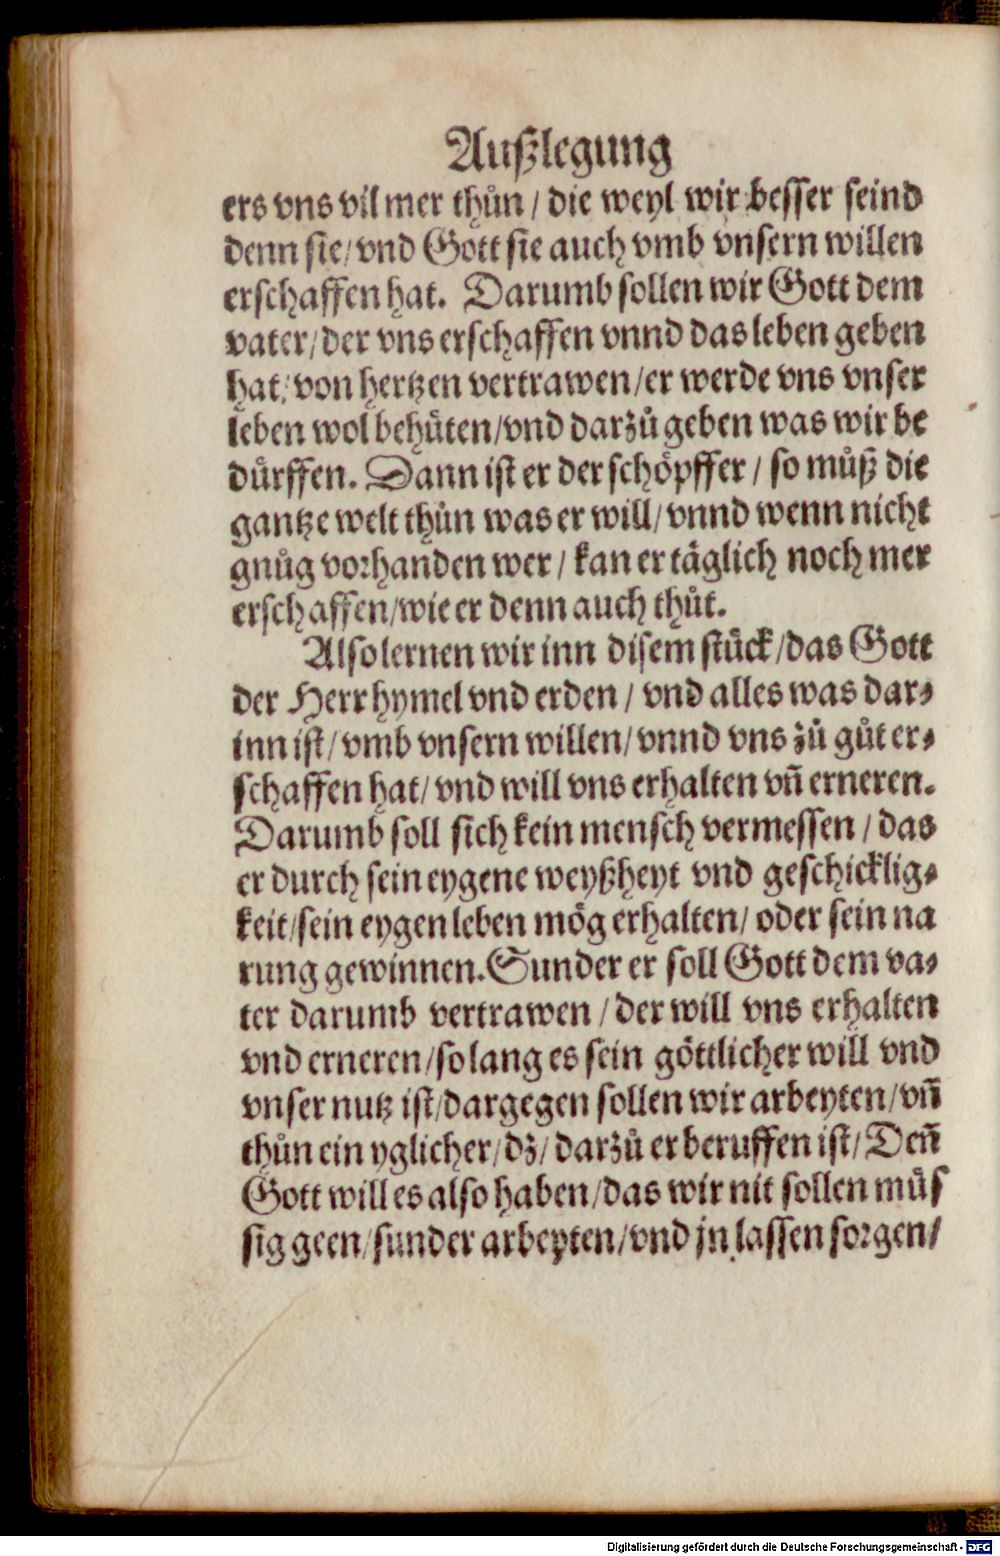 Außlegung
ers vns vil mer thůn / die weyl wir besser seind
denn sie / vnd Gott sie auch vmb vnsern willen
erschaffen hat. Darumb sollen wir Gott dem
vater / der vns erschaffen vnnd das leben geben
hat / von hertzen vertrawen / er werde vns vnser
leben wol behüten / vnd darzů geben was wir be
dürffen. Dann ist er der schöpffer / so můß die
gantze welt thůn was er will / vnnd wenn nicht
gnůg vorhanden wer / kan er täglich noch mer
erschaffen / wie er denn auch thůt.
Also lernen wir inn disem stück / das Gott
der Herr hymel vnd erden / vnd alles was dar⸗
inn ist / vmb vnsern willen / vnnd vns zů gůt er⸗
schaffen hat / vnd will vns erhalten vñ erneren.
Darumb soll sich kein mensch vermessen / das
er durch sein eygene weyßheyt vnd geschicklig⸗
keit / sein eygen leben mög erhalten / oder sein na
rung gewinnen. Sunder er soll Gott dem va⸗
ter darumb vertrawen / der will vns erhalten
vnd erneren / so lang es sein göttlicher will vnd
vnser nutz ist / dargegen sollen wir arbeyten / vñ
thůn ein yglicher / dz / darzů er beruffen ist / Deñ
Gott will es also haben / das wir nit sollen müs
sig geen / sunder arbeyten / vnd jn lassen sorgen /
Digitalisierung gefördert durch die Deutsche Forschungsgemeinschaft - DFG